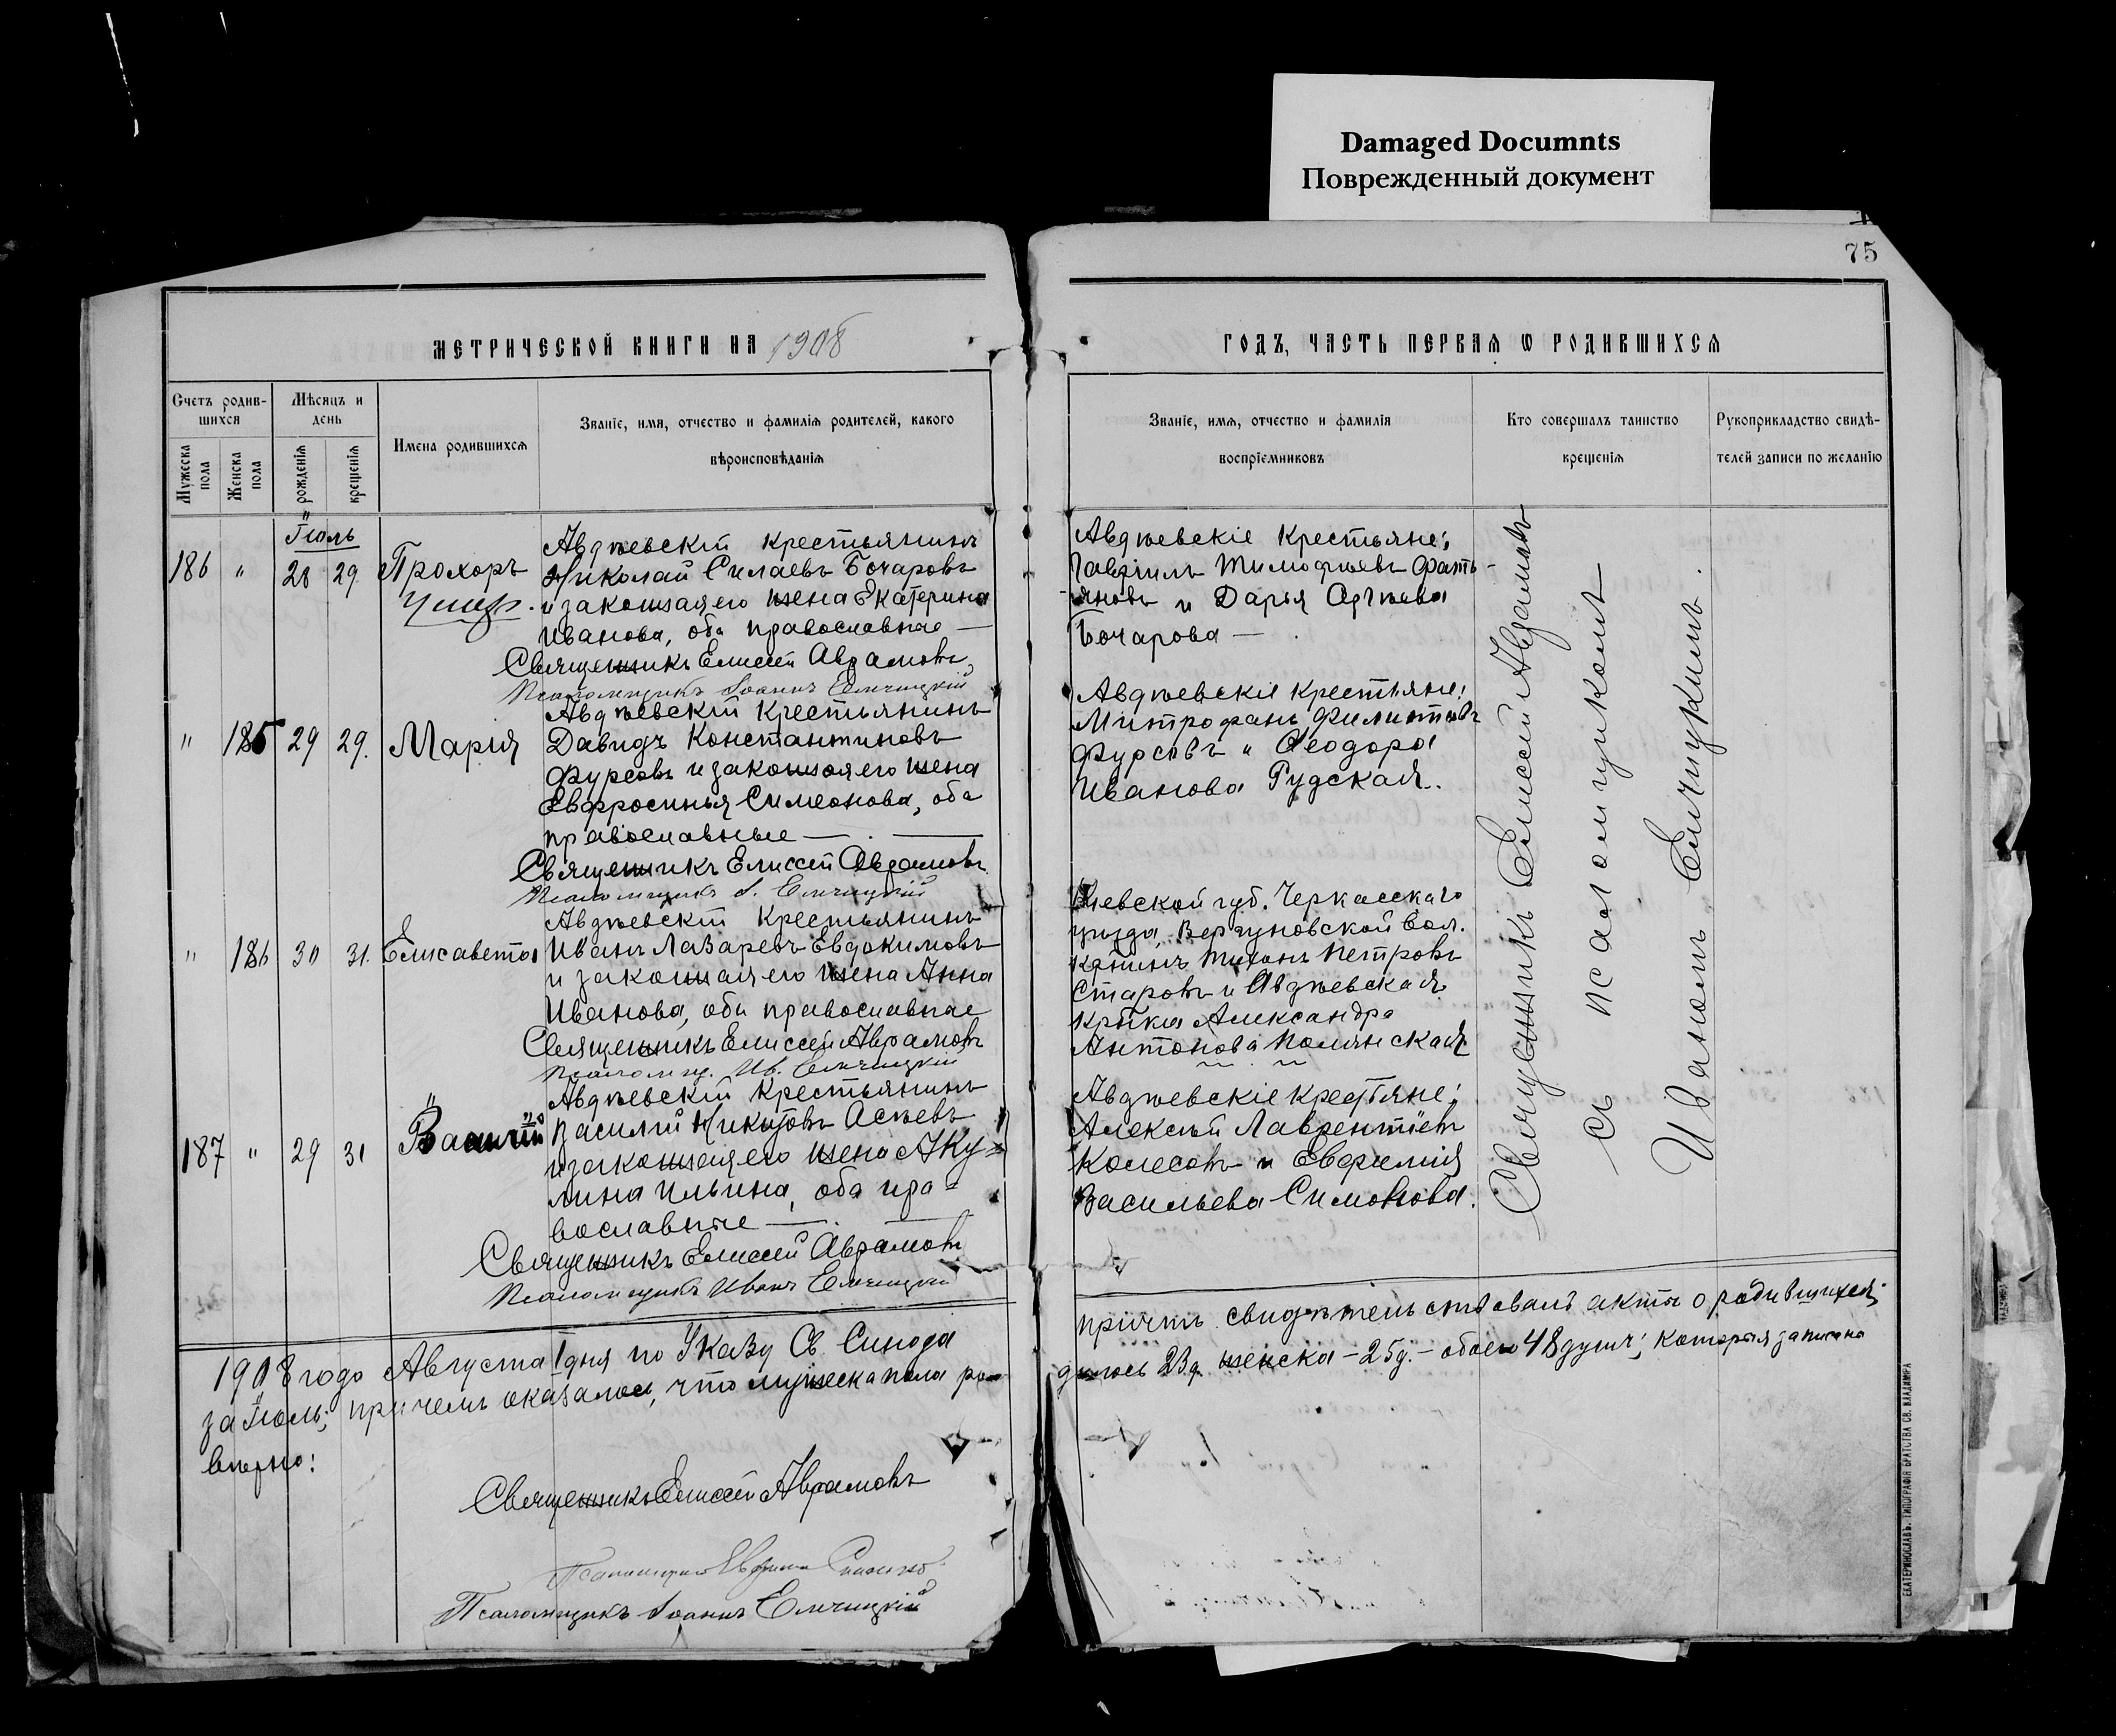 Damaged Documnts
Поврежденный документ
75
МЕТРИЧЕСКОЙ КНИГИ НА 1908
ГОДЪ, ЧАСТЬ ПЕРВАЯ Ѡ РОДИВШИХСЯ
Счетъ родив-
шихся
Мужеска пола
Женска пола
Мѣсяцъ и
день
рожденія
крещенія
Имена родившихся
Званіе, имя, отчество и фамилія родителей, какого
вѣроисповѣданія
Званіе, имя, отчество и фамилія
воспріемниковъ
Кто совершалъ таинство
крещенія
Рукоприкладство свидѣ-
телей записи по желанію
Іюль
186 " 28 29 Прохоръ
Умер.
Авдѣевскій крестьянинъ
Николай Силаевъ Бочаровъ
и законная его жена Екатерина
Иванова, оба православные —
Священникъ Елисей Аврамовъ
Псаломщикъ Іоаннъ Елчицкій
Авдѣевскіе крестьяне:
Гавріилъ Тимофѣевъ Фать-
яновъ и Дарья
Бочарова —
" 185 29 29. Марія
Авдѣевскій крестьянинъ
Давидъ Константиновъ
Фурсовъ и законная его жена
Евфросинья Симеонова, оба
православные — . —
Священникъ Елисей Аврамовъ
Псаломщикъ І. Елчицкій
Авдѣевскіе крестьяне:
Митрофанъ Филиповъ
Фурсовъ и Ѳеодора
Иванова Рудская.
" 186 30 31. Елисавета
Авдѣевскій крестьянинъ
Иванъ Лазаревъ Евдокимовъ
и законная его жена Анна
Иванова, оба православные
Священникъ Елисей Аврамовъ
Псаломщ. Ив. Елчицкій
Кіевской губ. Черкасскаго
уѣзда, Вергуновской вол.
кр-нинъ Тихонъ Петровъ
Старовъ и Авдѣевская
кр-нка Александра
Антонова Полянская
187 " 29 31 Василій
Авдѣевскій крестьянинъ
Василій Никитовъ Асѣевъ
и законная его жена Аку=
лина Ильина, оба пра=
вославные — . —
Священникъ Елисей Аврамовъ
Псаломщикъ Иванъ Елчицкій
Авдѣевскіе крестьяне:
Алексѣй Лаврентіевъ
Колесовъ и Евфимія
Васильева Симонова.
Священникъ Елисей Аврамовъ
съ псаломщикомъ
Иваномъ Елчицкимъ.
1908 года Августа 1 дня по Указу Св. Синода
причтъ свидѣтельствовалъ акты о родившихся
за Іюль; причемъ оказалось, что мужеска пола ро-
дилось 23 д. женска — 25 д. — обоего 48 душъ; которыя записано
вѣрно:
Священникъ Елисей Аврамовъ
Псаломщикъ
Псаломщикъ Іоаннъ Елчицкій
ЕКАТЕРИНОСЛАВЪ. ТИПОГРАФІЯ БРАТСТВА СВ. ВЛАДИМІРА